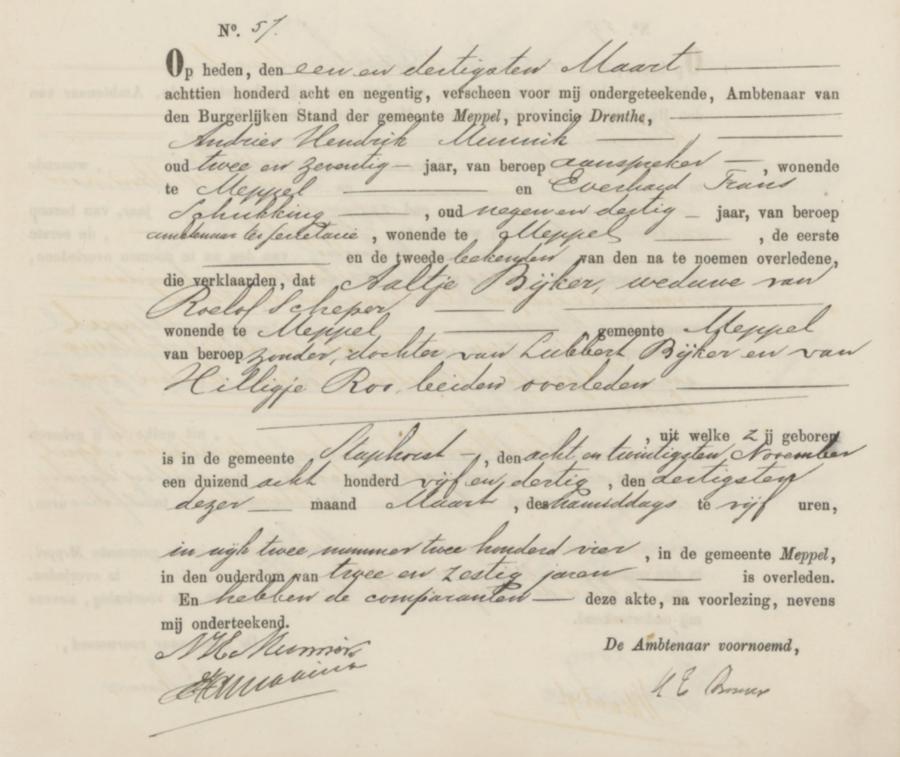 No. 57.
Op heden, den een en dertigsten Maart
achttien honderd acht en negentig, verscheen voor mij ondergeteekende, Ambtenaar van
den Burgerlijken Stand der gemeente Meppel, provincie Drenthe,
Andries Hendrik Munnik
oud twee en zeventig jaar, van beroep aanspreker, wonende
te Meppel en Everhard Frans
Schukking, oud negen en dertig jaar, van beroep
ambtenaar ter secretarie, wonende te Meppel, de eerste
en de tweede bekenden van den na te noemen overledene,
die verklaarden, dat Aaltje Bijker, weduwe van
Roelof Scheper,
wonende te Meppel gemeente Meppel
van beroep zonder, dochter van Lubbert Bijker en van
Hilligje Ros, beiden overleden
, uit welke zij geboren
is in de gemeente Staphorst, den acht en twintigsten November
een duizend acht honderd vijf en dertig, den dertigsten
dezer maand Maart, des namiddags te vijf uren,
in wijk twee nummer twee honderd vier, in de gemeente Meppel,
in den ouderdom van twee en zestig jaren is overleden.
En hebben de comparanten deze akte, na voorlezing, nevens
mij onderteekend.
De Ambtenaar voornoemd,